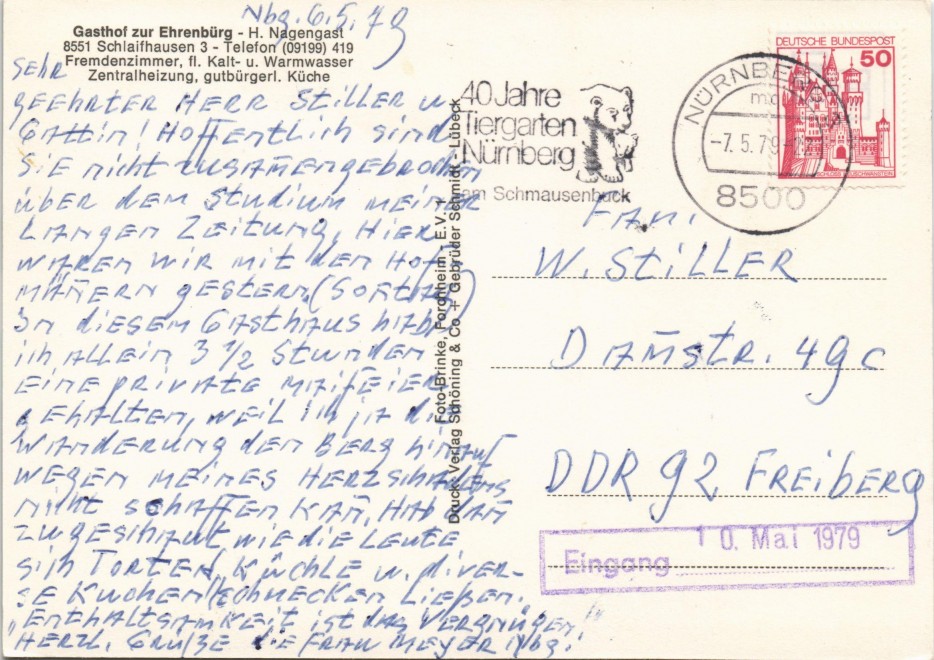 Nbg. 6.5.79
Gasthof zur Ehrenbürg - H. Nagengast
8551 Schlaifhausen 3 - Telefon (09199) 419
Fremdenzimmer, fl. Kalt- u. Warmwasser
Zentralheizung, gutbürgerl. Küche
Sehr
geehrter Herr Stiller u.
Gattin! Hoffentlich sind
Sie nicht zusam̄engebrochen
über dem Studium meiner
langen Zeitung, Hier
waren wir mit den
gestern, (Son̄tag)
In diesem Gasthaus habe
ich allein 3 1/2 Stunden
eine private Maifeier
gehalten, weil ich ja die
Wanderung den Berg hinauf
wegen meines Herzschadens
nicht schaffen kan̄, hab dan̄
zugeschaut wie die Leute
sich Torten, Küchle u. diver-
se Kuchen schmecken ließen.
"Enthaltsamkeit ist das Vergnügen!"
Herzl. Grüße die Frau Meyer Nbg.
Foto-Brinke, Forchheim - E.V. 1
Druck: Verlag Schöning & Co + Gebrüder Schmidt - Lübeck
40 Jahre
Tiergarten
Nürnberg
am Schmausenbuck
NÜRNBERG
-7.5.79
8500
DEUTSCHE BUNDESPOST
50
Fam.
W. Stiller
Dam̄str. 49c
DDR 92 Freiberg
Eingang 10. Mai 1979